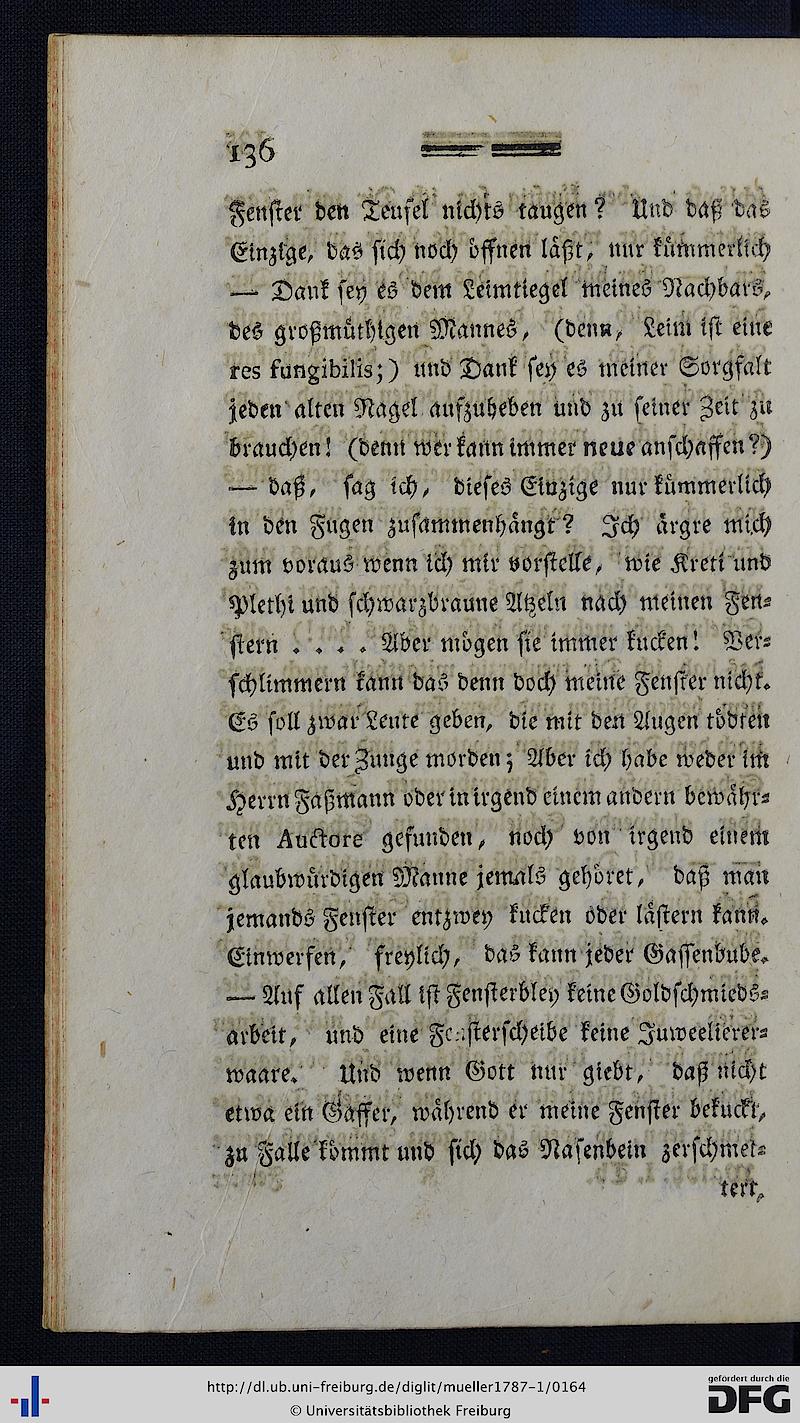 136
Fenster den Teufel nichts taugen? Und daß das
Einzige, das sich noch öffnen läßt, nur kümmerlich
— Dank sey es dem Leimtiegel meines Nachbars,
des großmüthigen Mannes, (denn, Leim ist eine
res fungibilis;) und Dank sey es meiner Sorgfalt
jeden alten Nagel aufzuheben und zu seiner Zeit zu
brauchen! (denn wer kann immer neue anschaffen?)
— daß, sag ich, dieses Einzige nur kümmerlich
in den Fugen zusammenhängt? Ich ärgre mich
zum voraus wenn ich mir vorstelle, wie Kreti und
Plethi und schwarzbraune Atzeln nach meinen Fen-
stern . . . . Aber mögen sie immer kucken! Ver-
schlimmern kann das denn doch meine Fenster nicht.
Es soll zwar Leute geben, die mit den Augen tödten
und mit der Zunge morden; Aber ich habe weder im
Herrn Faßmann oder in irgend einem andern bewähr-
ten Auctore gefunden, noch von irgend einem
glaubwürdigen Manne jemals gehöret, daß man
jemands Fenster entzwey kucken oder lästern kann.
Einwerfen, freylich, das kann jeder Gassenbube.
— Auf allen Fall ist Fensterbley keine Goldschmieds-
arbeit, und eine Fensterscheibe keine Juweelierer-
waare. Und wenn Gott nur giebt, daß nicht
etwa ein Gaffer, während er meine Fenster bekuckt,
zu Falle kömmt und sich das Nasenbein zerschmet-
tert,
http://dl.ub.uni-freiburg.de/diglit/mueller1787-1/0164
© Universitätsbibliothek Freiburg
gefördert durch die
DFG